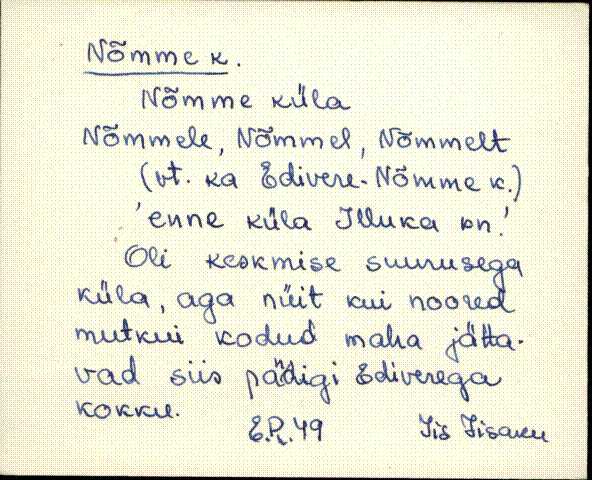 Nõmme k.
Nõmme küla
Nõmmele, Nõmmel, Nõmmelt
(vt. ka Edivere-Nõmme k.)
'enne küla Illuka pn.'
Oli keskmise suurusega
küla, aga nüit kui noored
mutkui kodud maha jätta-
vad siis pädigi Ediverega
kokku.
E.R. 49 Iis Iisaku